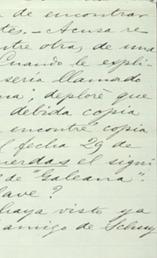 a de encontrar
des. - Acusa re
entre otras, de una
Cuando le espli-
seria llamado
na", deploré que
debida copia
encontre copia
fecha 29 de
uerdas el signi
de "Galeana".
lave?
haya visto ya
amigo de Schuy